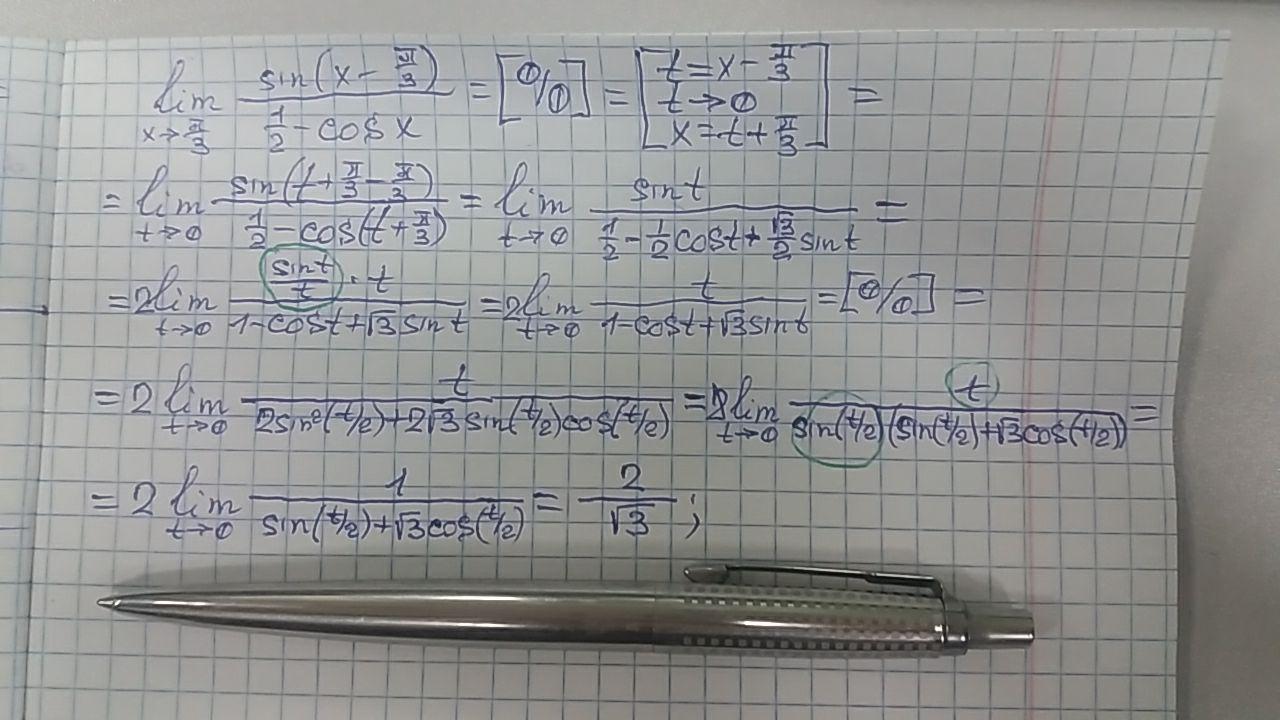 lim x→π/3 sin(x - π/3) / (1/2 - cos x) = [0/0] = [t = x - π/3 t→0 x = t + π/3] =
= lim t→0 sin(t + π/3 - π/3) / (1/2 - cos(t + π/3)) = lim t→0 sin t / (1/2 - 1/2 cos t + √3/2 sin t) =
= 2 lim t→0 (sin t / t · t) / (1 - cos t + √3 sin t) = 2 lim t→0 t / (1 - cos t + √3 sin t) = [0/0] =
= 2 lim t→0 t / (2 sin²(t/2) + 2√3 sin(t/2) cos(t/2)) = lim t→0 t / (sin(t/2) (sin(t/2) + √3 cos(t/2))) =
= 2 lim t→0 1 / (sin(t/2) + √3 cos(t/2)) = 2 / √3 ;